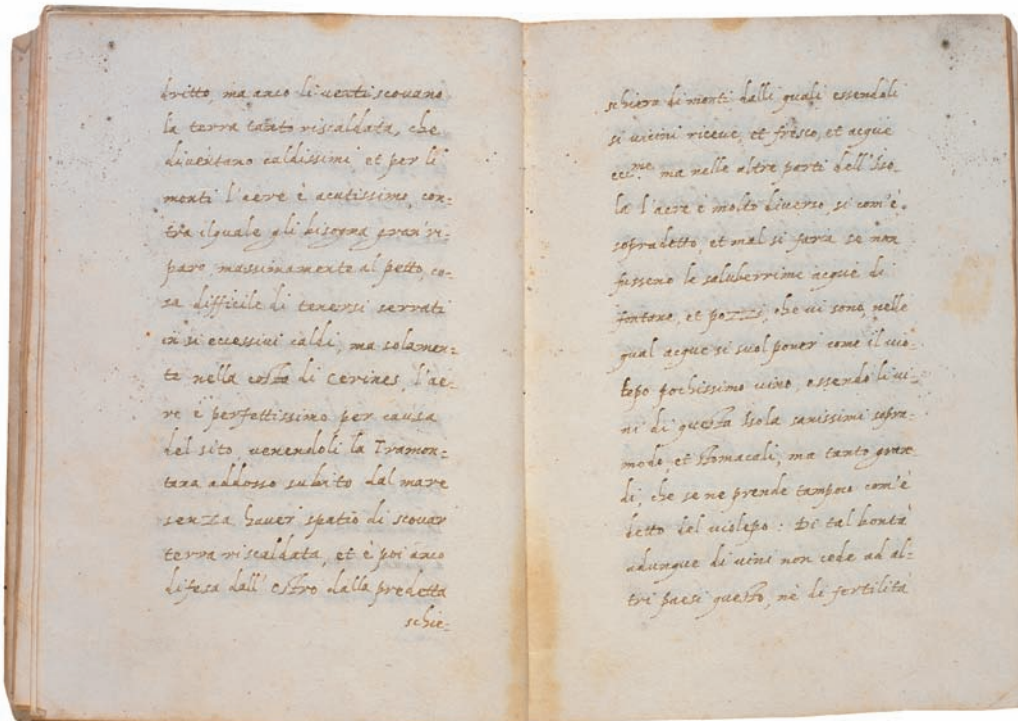 dritto, ma anco li venti scovano
la terra tanto riscaldata, che
diventano caldissimi, et per li
monti l'aere è acutissimo, con:
tra il quale gli bisogna gran ri:
paro, massimamente al petto, co:
sa difficile di tenersi serrati
in si eccessivi caldi, ma solamen:
te nella costa di Cerines, l'ae:
re è perfettissimo per causa
del sito, venendoli la Tramon:
tana addosso subito dal mare
senza haver spatio di scovar
terra riscaldata, et è poi anco
difesa dall'ostro dalla predetta
schie:
schiera di monti dalli quali essendoli
si vicini riceve, et fresco, et acque
ecc.me ma nelle altre parti dell'Iso:
la l'aere è molto diverso, si com'è
sopradetto, et mal si faria se non
fusseno le saluberrime acque di
fontane, et pozzi, che vi sono, nelle
qual acque si suol poner come il vio:
lepo pochissimo vino, essendo li vi:
ni di questa Isola sanissimi sopra:
modo, et stomacali, ma tanto gran:
di, che se ne prende tampoco com'è
detto del violepo: Di tal bontà
adunque di vini non cede ad al:
tri paesi questo, nè di fertilità